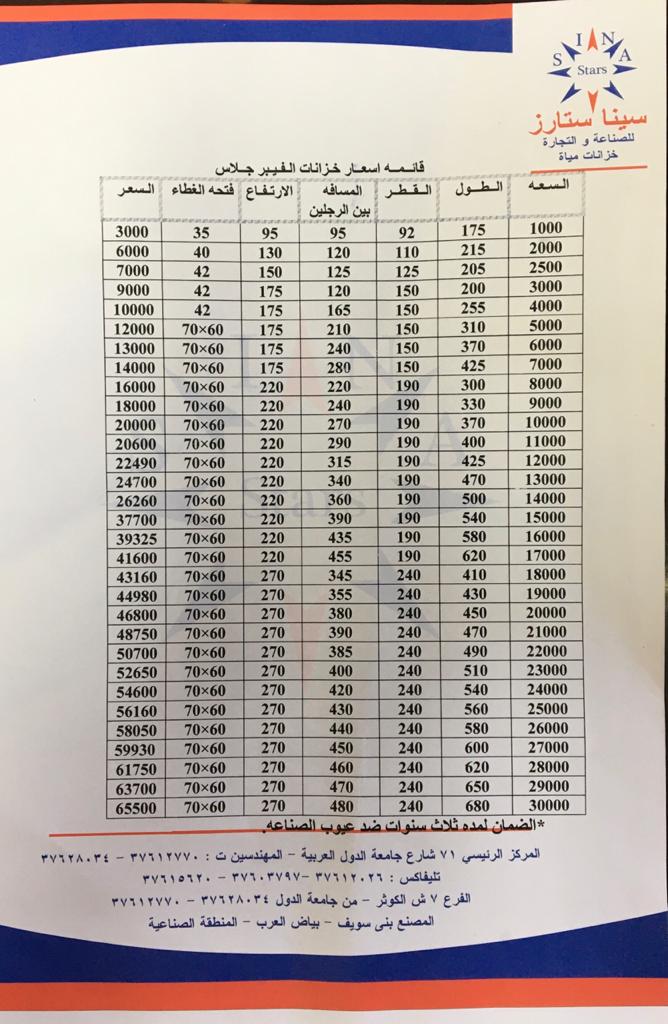 S I N A
Stars
سينا ستارز
للصناعة و التجارة
خزانات مياة
قائمه اسعار خزانات الفيبر جلاس
السعه الطول القطر المسافه بين الرجلين الارتفاع فتحه الغطاء السعر
1000 175 92 95 95 35 3000
2000 215 110 120 130 40 6000
2500 205 125 125 150 42 7000
3000 200 150 120 175 42 9000
4000 255 150 165 175 42 10000
5000 310 150 210 175 70×60 12000
6000 370 150 240 175 70×60 13000
7000 425 150 280 175 70×60 14000
8000 300 190 220 220 70×60 16000
9000 330 190 240 220 70×60 18000
10000 370 190 270 220 70×60 20000
11000 400 190 290 220 70×60 20600
12000 425 190 315 220 70×60 22490
13000 470 190 340 220 70×60 24700
14000 500 190 360 220 70×60 26260
15000 540 190 390 220 70×60 37700
16000 580 190 435 220 70×60 39325
17000 620 190 455 220 70×60 41600
18000 410 240 345 270 70×60 43160
19000 430 240 355 270 70×60 44980
20000 450 240 380 270 70×60 46800
21000 470 240 390 270 70×60 48750
22000 490 240 385 270 70×60 50700
23000 510 240 400 270 70×60 52650
24000 540 240 420 270 70×60 54600
25000 560 240 430 270 70×60 56160
26000 580 240 440 270 70×60 58050
27000 600 240 450 270 70×60 59930
28000 620 240 460 270 70×60 61750
29000 650 240 470 270 70×60 63700
30000 680 240 480 270 70×60 65500
*الضمان لمده ثلاث سنوات ضد عيوب الصناعه.
المركز الرئيسي ٧١ شارع جامعة الدول العربية – المهندسين ت : ٣٧٦١٢٧٧٠ – ٣٧٦٢٨٠٣٤
تليفاكس : ٣٧٦١٢٠٢٦ –٣٧٦٠٣٧٩٧ – ٣٧٦١٥٦٢٠
الفرع ٧ ش الكوثر – من جامعة الدول ٣٧٦٢٨٠٣٤ – ٣٧٦١٢٧٧٠
المصنع بنى سويف – بياض العرب – المنطقة الصناعية